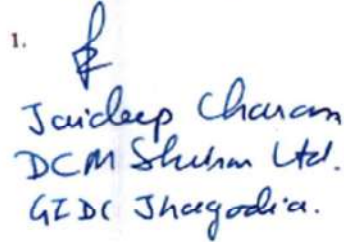 1.
Jaideep Charan
DCM Shriram Ltd.
GIDC Jhagadia.